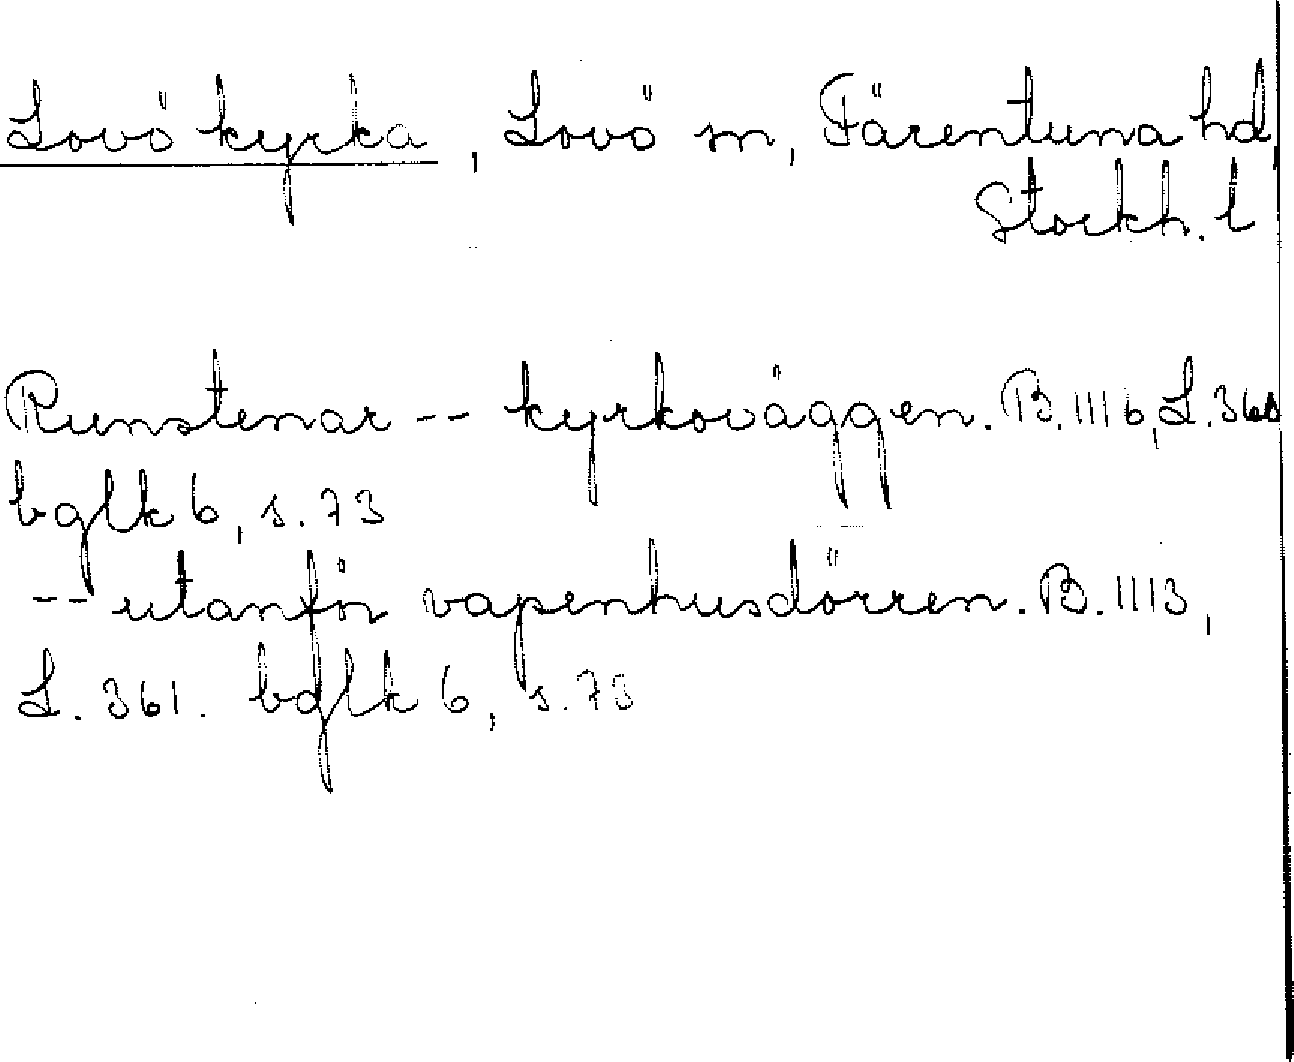 Lovö kyrka, Lovö sn, Färentuna hd,
Stockh. l
Runstenar -- kyrkoväggen. B. 1116, L. 360
bglk 6, s. 73
-- utanför vapenhusdörren. B. 1113,
L. 361. bglk 6, s. 73